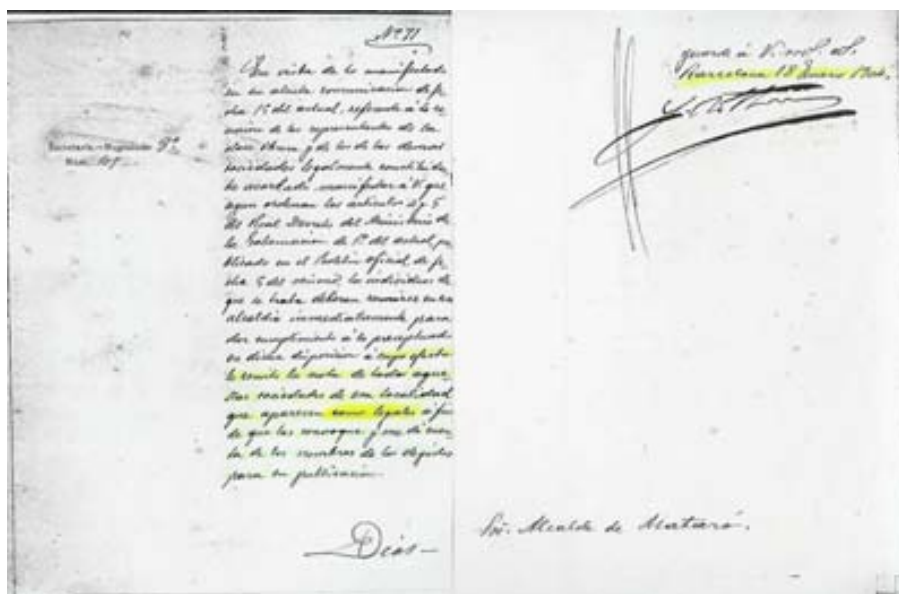 Nº 71
En vista de lo manifestado
en su atenta comunicacion de fe
cha 15 del actual, referente á la reu
nion de los representantes de la
clase obrera y de los de las diversas
sociedades legalmente constituidas
he acordado manifestar á V. que
segun ordenan los artículos 4 y 5
del Real Decreto del Ministerio de
la Gobernacion de 1º del actual, pu
blicado en el Boletin Oficial de fe
cha 5 del mismo, los individuos de
que se trata deberan reunirse en esa
alcaldia inmediatamente para
dar cumplimiento á lo preceptuado
en dicha disposicion á cuyo efecto
le remito la nota de todas aque
llas sociedades de esa localidad
que aparecen como legales á fin
de que las convoque y me dé cuen
ta de los nombres de los elegidos
para su publicacion.
Dios
Secretaría - Negociado 3º
Núm.
guarde á V. m. a.
Barcelona 18 Enero
Sr. Alcalde de Mataró.